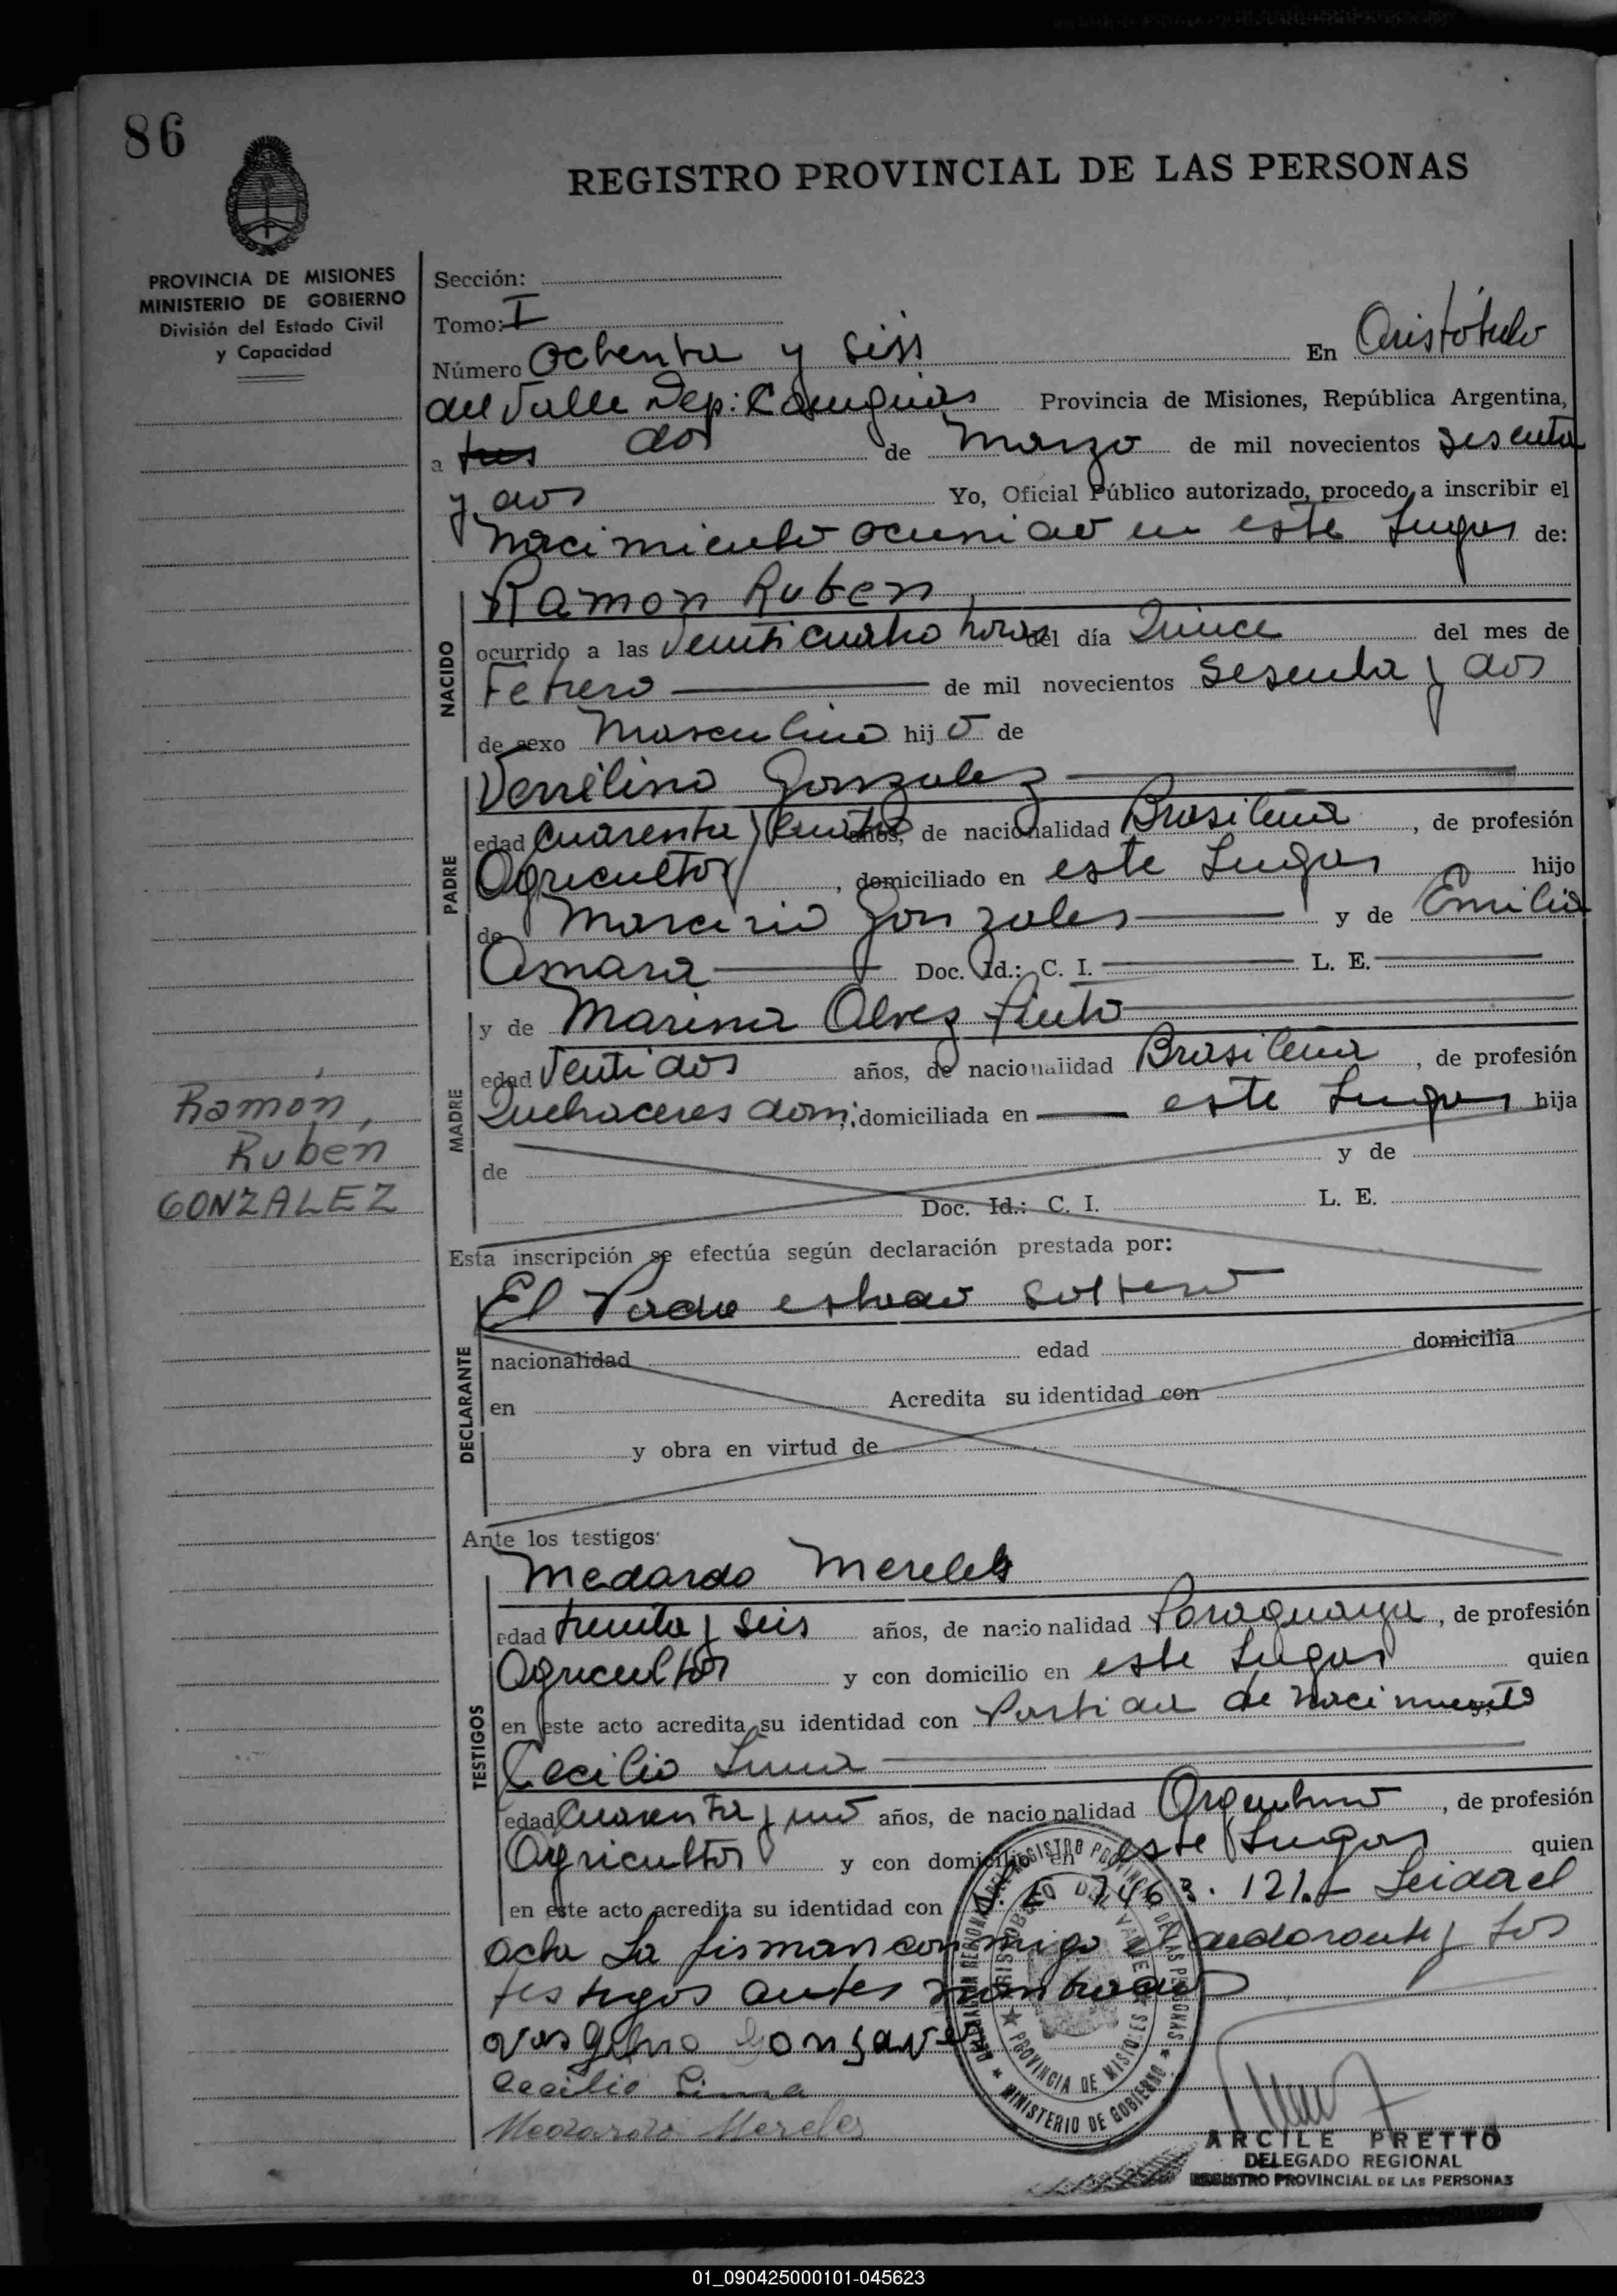 86
REGISTRO PROVINCIAL DE LAS PERSONAS
PROVINCIA DE MISIONES
MINISTERIO DE GOBIERNO
División del Estado Civil
y Capacidad
Sección:
Tomo: I
Número Ochenta y Seis En Aristóbulo
del Valle Dep: Cainguás Provincia de Misiones, República Argentina,
a tres dos de Marzo de mil novecientos sesenta
y dos Yo, Oficial Público autorizado, procedo a inscribir el
Nacimiento ocurrido en este Lugar de:
NACIDO
Ramon Ruben,
ocurrido a las Venticuatro horas del día Quince del mes de
Febrero de mil novecientos Sesenta y dos
de sexo Masculino hijo de
PADRE
Gonzalez
edad Cuarenta y cuatro años, de nacionalidad Brasileña, de profesión
Agricultor, domiciliado en este Lugar hijo
de Marcirio Gonzales y de Emilia
Amara Doc. Id.: C. I. L. E.
MADRE
y de Marina Alvez Pinto
edad Ventidos años, de nacionalidad Brasileña, de profesión
Quehaceres dom: domiciliada en este Lugar hija
de y de
Doc. Id.: C. I. L. E.
Ramón,
Rubén
GONZALEZ
Esta inscripción se efectúa según declaración prestada por:
DECLARANTE
El Padre estado Soltero
nacionalidad edad domicilia
en Acredita su identidad con
y obra en virtud de
Ante los testigos:
TESTIGOS
Medardo Mereles
edad treinta y Seis años, de nacionalidad Paraguaya, de profesión
Agricultor y con domicilio en este Lugar quien
en este acto acredita su identidad con Partida de Nacimiento
Cecilio Lima
edad Cuarenta y uno años, de nacionalidad Argentino, de profesión
Agricultor y con domicilio en este Lugar quien
en este acto acredita su identidad con 7463.121.- Leida el
acta La firman conmigo el declarante y Los
testigos antes nombrados
Cecilio Lima
Medardo Mereles
REGISTRO PROVINCIAL DE LAS PERSONAS
ARISTOBULO DEL VALLE
PROVINCIA DE MISIONES
MINISTERIO DE GOBIERNO
ARCILE PRETTO
DELEGADO REGIONAL
REGISTRO PROVINCIAL DE LAS PERSONAS
01_090425000101-045623